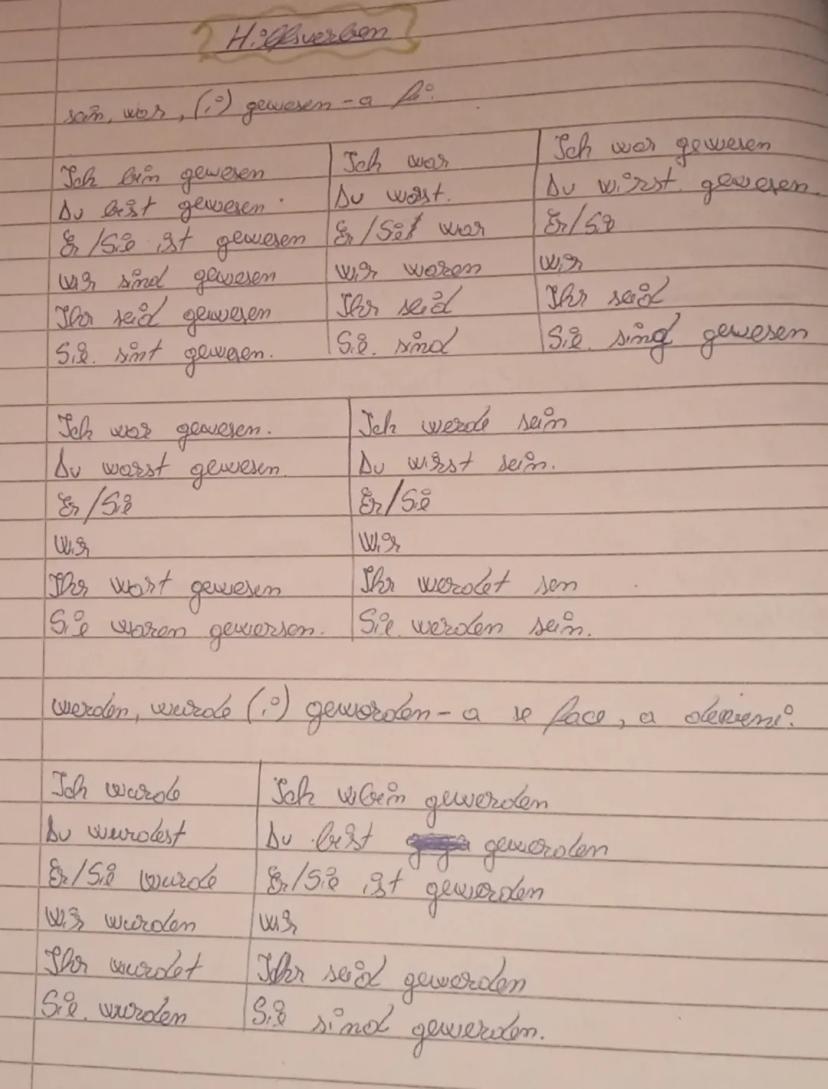 Hilfsverben
sein, war, (i) gewesen - a fi
Ich bin gewesen | Ich war | Ich war gewesen
Du bist gewesen. | Du warst. | Du wirst gewesen
Er/Sie ist gewesen | Er/Sie war | Er/Sie
wir sind gewesen | wir waren | wir
Ihr seid gewesen | Ihr seid | Ihr seid
Sie sint gewesen. | Sie sind | Sie sing gewesen
Ich war gewesen. | Ich werde sein
Du warst gewesen | Du wirst sein.
Er/Sie | Er/Sie
Wir | Wir
Ihr wart gewesen | Ihr werdet sen
Sie waren gewersen. | Sie werden sein.
werden, wurde (i) geworden - a se face, a deveni
Ich wurde | Ich bin geworden
Du wurdest | Du bist geworden
Er/Sie wurde | Er/Sie ist geworden
Wir wurden | wir
Ihr wurdet | Ihr seid geworden
Sie wurden | Sie sind geworden.